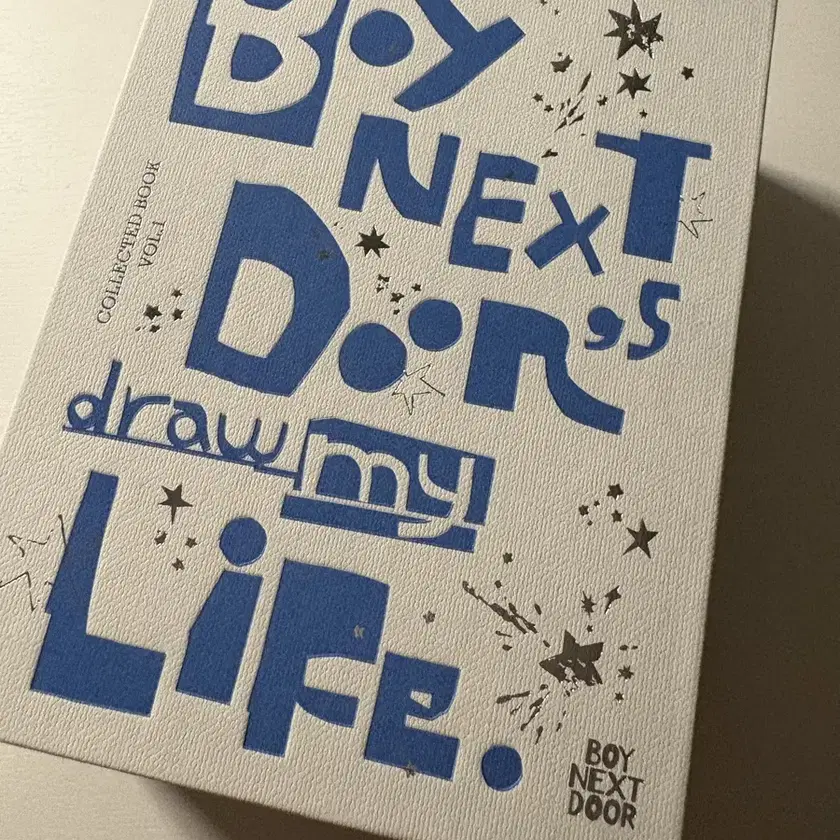 BOY
NEXT
DOOR's
draw my
LiFe.
COLLECTED BOOK
VOL.1
BOY
NEXT
DOOR